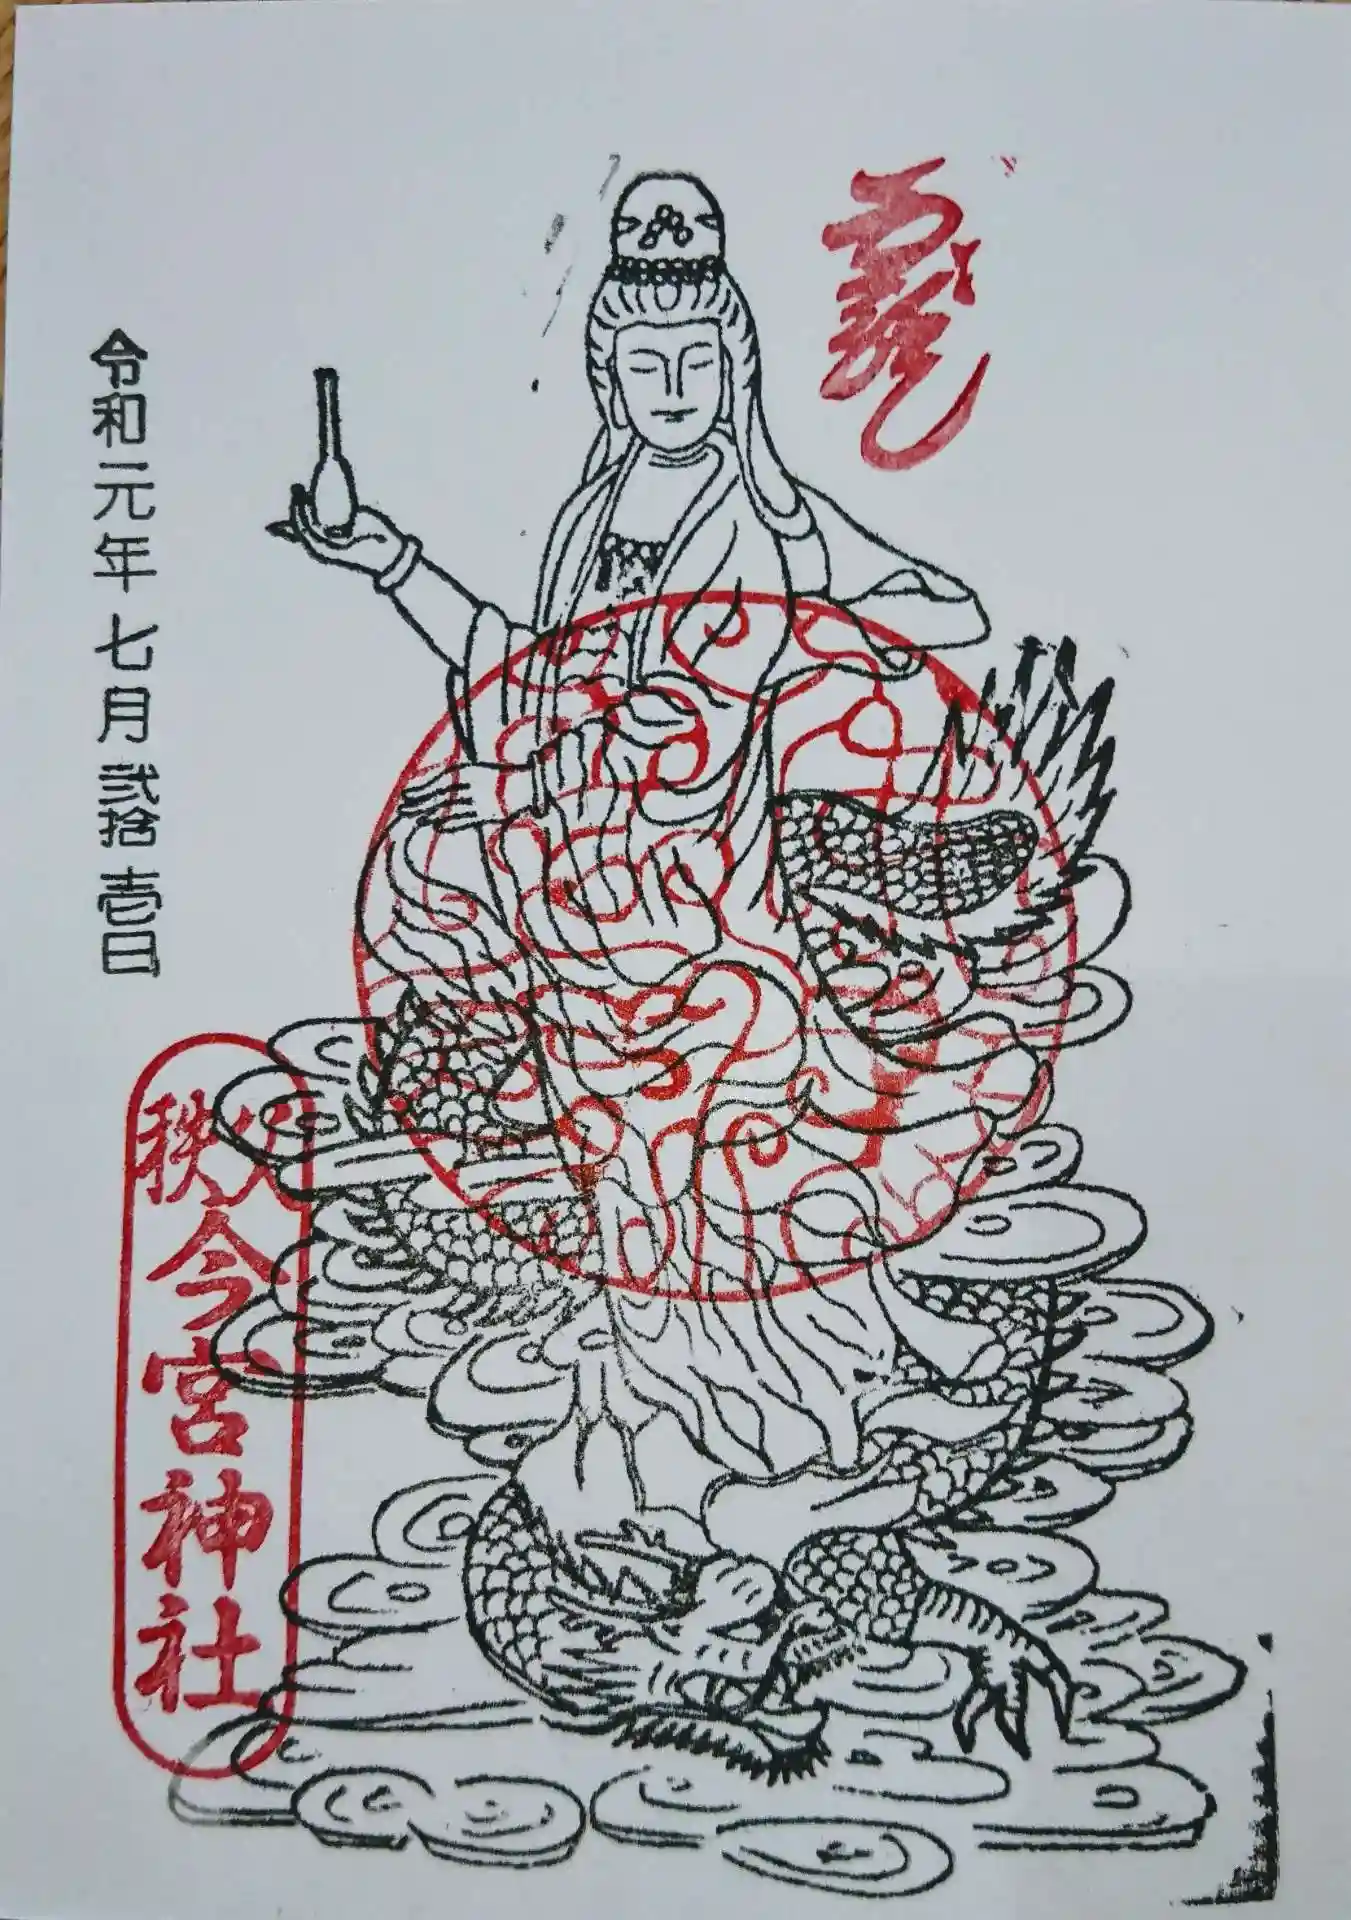 龍
令和元年七月弐拾壱日
秩父
今宮神社